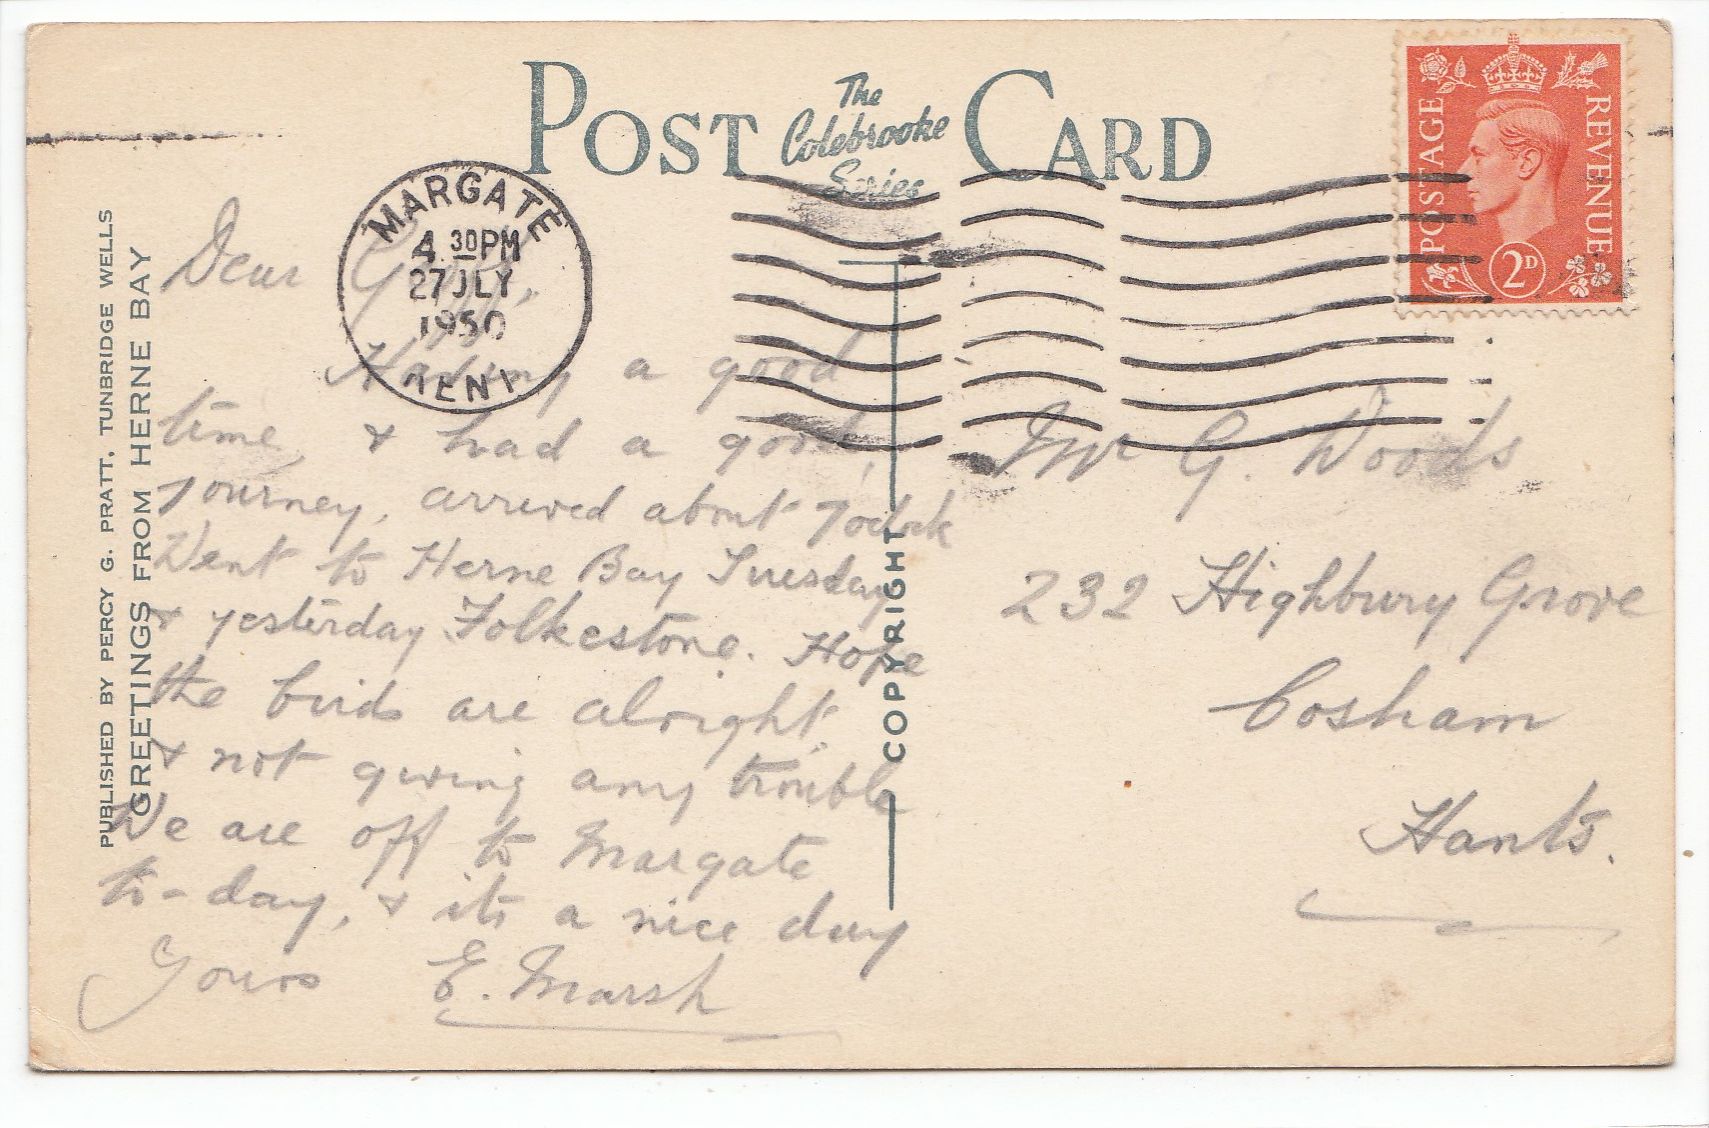 POST CARD
The
Colebrooke
Series
POSTAGE
REVENUE
2D
MARGATE
4.30PM
27 JLY
1950
KENT
PUBLISHED BY PERCY G. PRATT, TUNBRIDGE WELLS
GREETINGS FROM HERNE BAY
COPYRIGHT
Dear
Having a good
time, & had a good,
journey, arrived about 7oclock
Went to Herne Bay Tuesday
& yesterday Folkestone. Hope
the birds are alright
& not giving any trouble
We are off to Margate
to-day, & its a nice day
Yours E. Marsh
Mr G. Woods
232 Highbury Grove
Cosham
Hants.